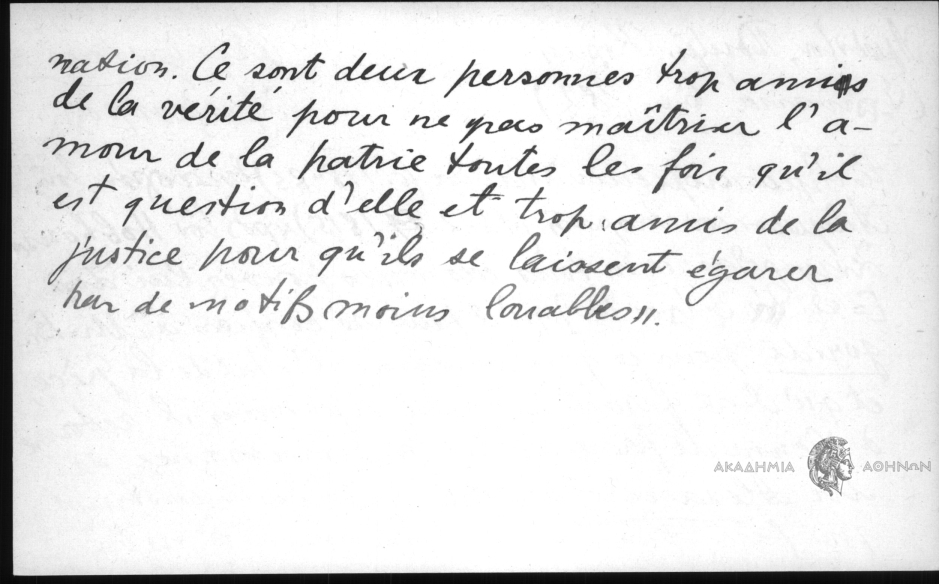 nation. Ce sont deux personnes trop amis
de la vérité pour ne pas maîtriser l'a-
mour de la patrie toutes les fois qu'il
est question d'elle et trop amis de la
justice pour qu'ils se laissent égarer
par de motifs moins louables".
ΑΚΑΔΗΜΙΑ ΑΘΗΝΩΝ